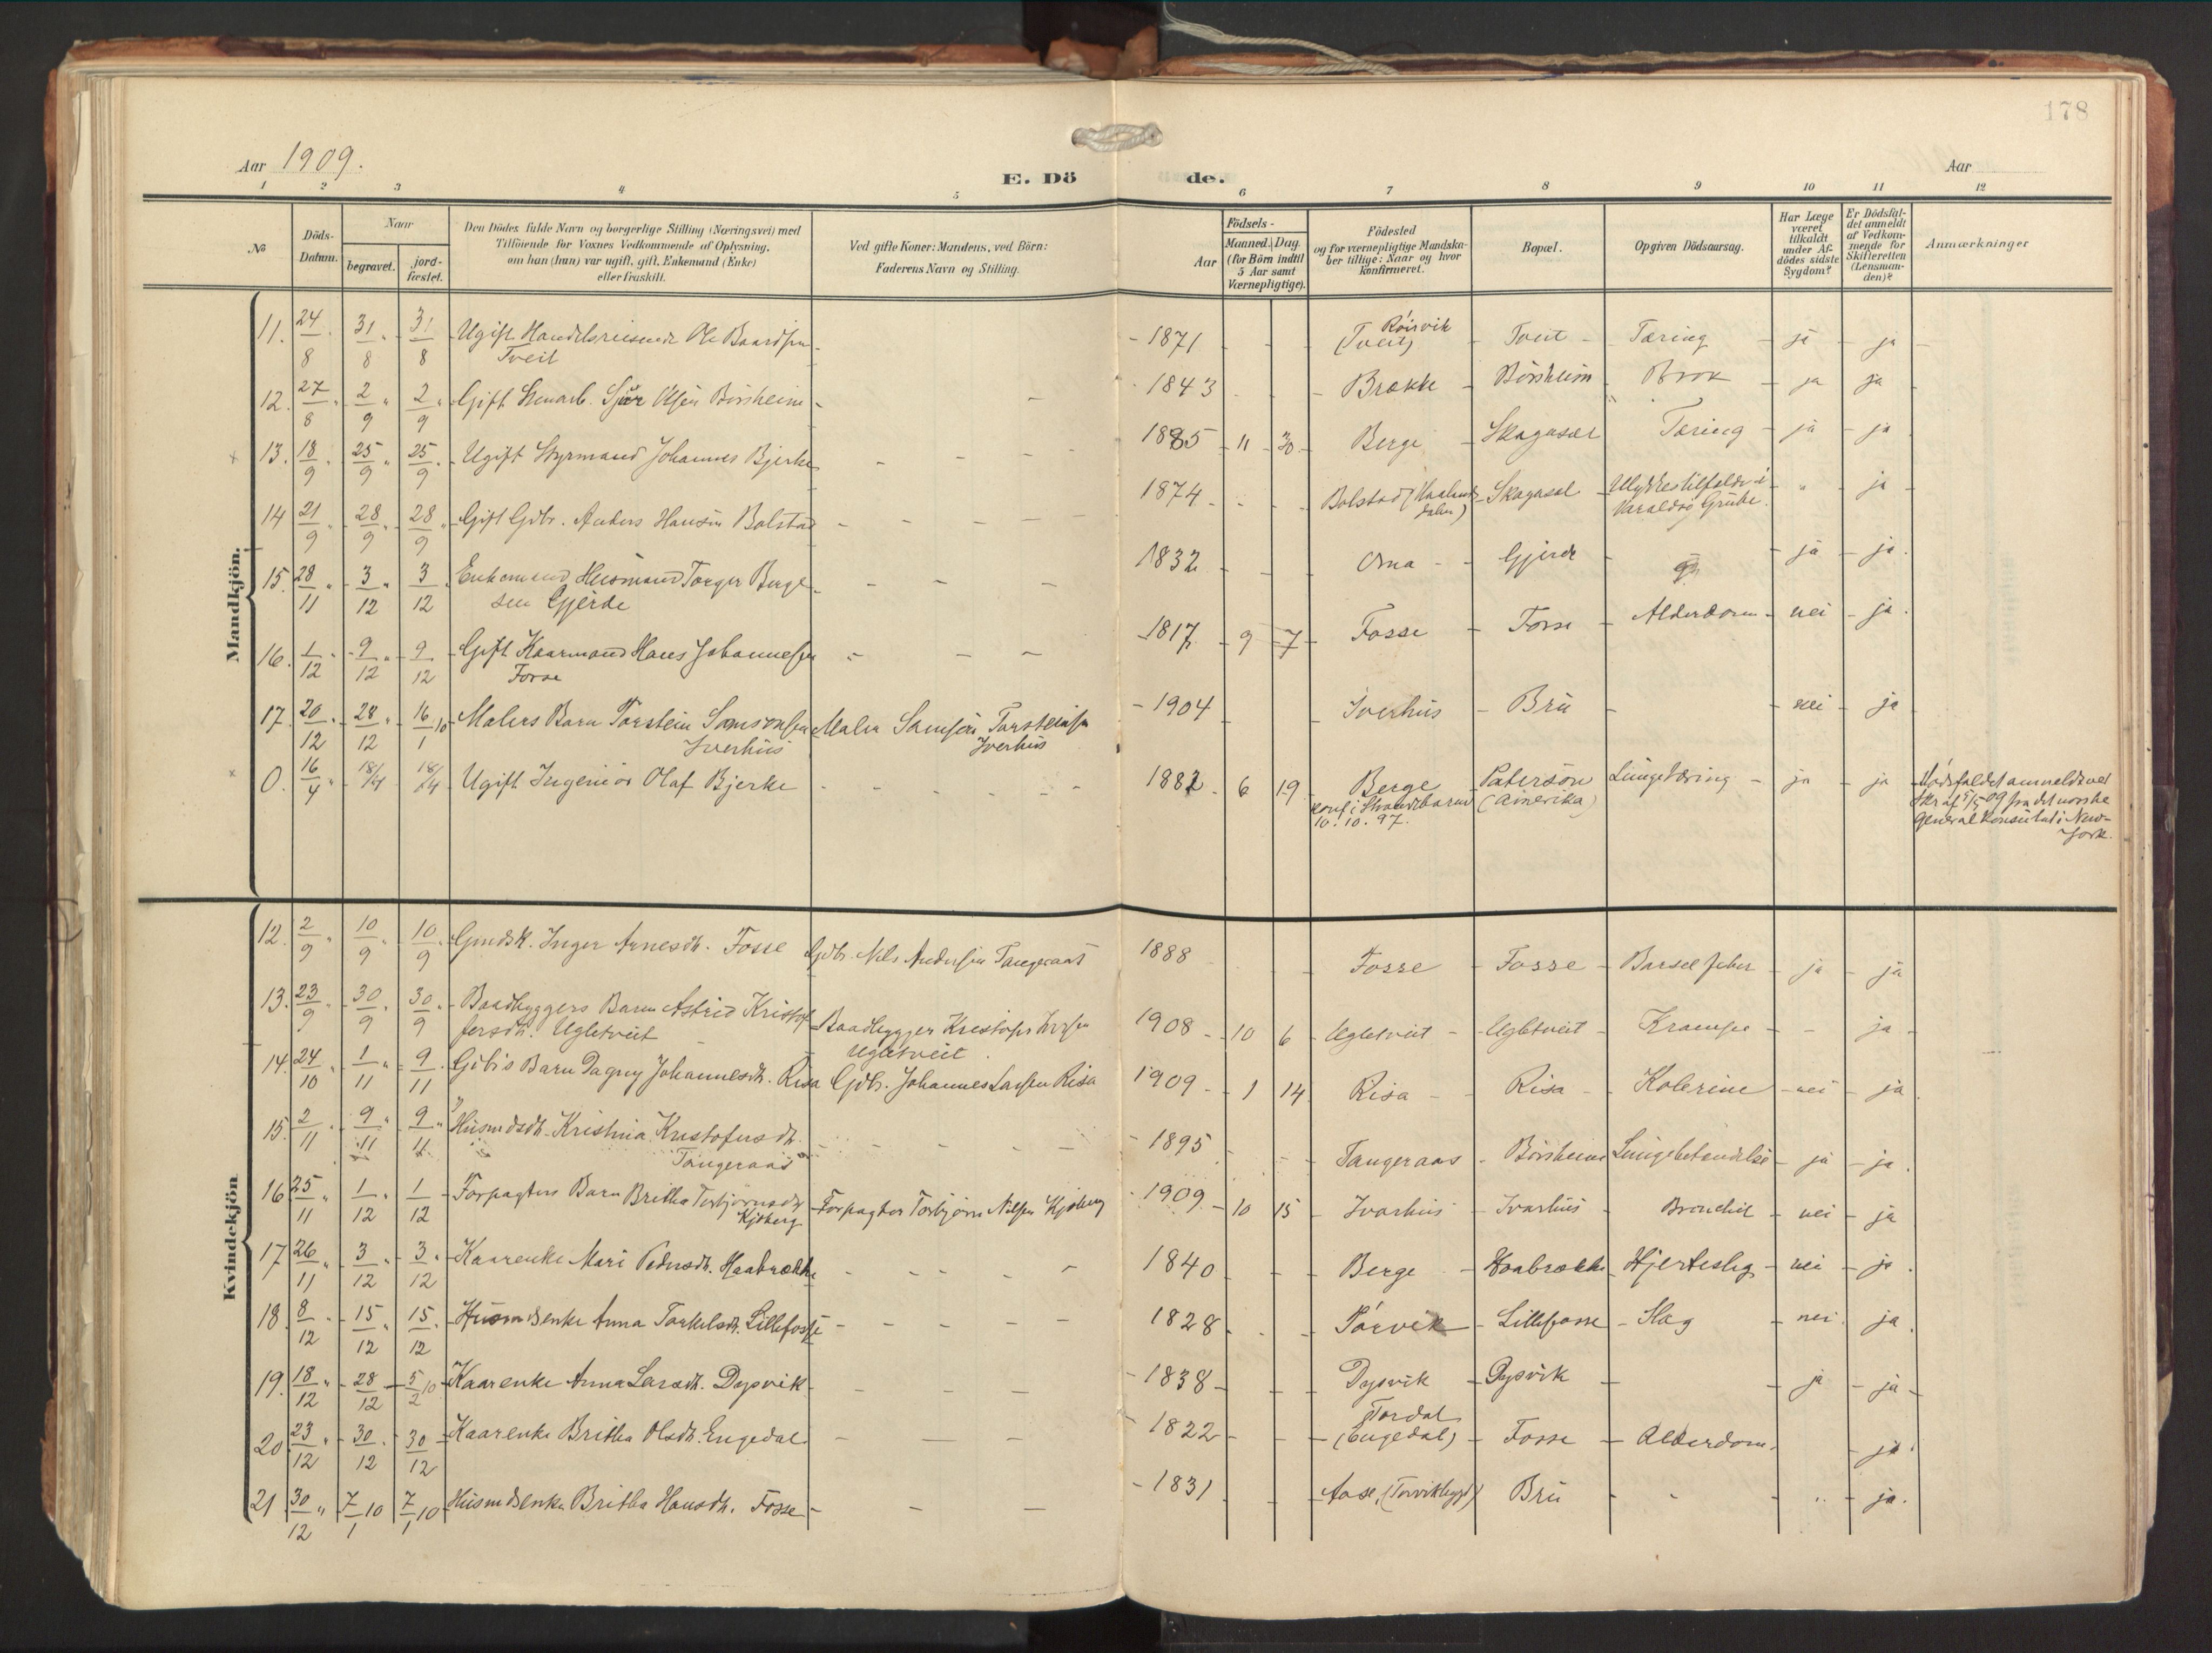 178
Aar 1909.
Aar
E. Dö de.
1 2 3 4 5 6 7 8 9 10 11 12
№
Döds-Datum.
Naar
begravet.
jord-fæstet.
Den Dödes fulde Navn og borgerlige Stilling (Næringsvei) med
Tilföiende for Voxnes Vedkommende af Oplysning,
om han (hun) var ugift, gift, Enkemand (Enke)
eller fraskilt.
Ved gifte Koner: Mandens, ved Börn:
Faderens Navn og Stilling.
Födsels-
Aar
Maaned. Dag.
(for Börn indtil
5 Aar samt
Værnepligtige).
Födested
og for værnepligtige Mandska-
ber tillige: Naar og hvor
konfirmeret.
Bopæl.
Opgiven Dödsaarsag.
Har Læge
været
tilkaldt
under Af-
dödes sidste
Sygdom?
Er Dödsfal-
det anmeldt
af Vedkom-
mende for
Skifteretten
(Lensman-
den)?
Anmærkninger
Mandkjön.
11. 24/8 31/8 31/8 Ugift Handelsreisende Ole Baardsen - 1871 - - Röisvik - Tveit - Tæring - ja - ja -
Tveit (Tveit)
12. 27/8 " 2/9 " 2/9 " Gift Stenarb. Sjur Olsen Börsheim - 1843 - Brakke - Börsheim - Brok - ja ja
13. 18/9 " 25/9 " 25/9 Ugift Styrmand Johannes Bjerke - 1885 - 11 - 30 - Berge - Skagasæl Tæring - ja - ja
14 21/9 28/9 " 28/9 " Gift Gdbr. Anders Hansen Bolstad - 1874 - Bolstad - Skagasel - Ulykkestilfælde i - " - ja -
Varaldsö Grube.
15. 28/11 " 3/12 " 3/12 Enkemand Husmand Torger Berge- 1832 Oma - Gjerde - - ja - ja.
sen Gjerde
16. 1/12 " 9/12 " 9/12 Gift Kaarmand Hans Johannessen - 1817 - 9 - 7 - Fosse - Fosse - Alderdom - nei - ja.
Fosse
17. 20/12 " 28/12 " 16/1 10 Malers Barn Torstein Samsonsen Maler Samson Torsteinsen - 1904 - Iverhus - Bru - nei - ja
Iverhus Iverhus
0. 16/4 18/4 18/4 Ugift Ingeniör Olaf Bjerke - 1882 - 6 19 Berge Paterson Lungetæring - ja - ja
konf. i Strandebarm (Amerika)
10.10.97.
Dödsfaldet anmeldt ved
Skr. af 5/5 09 fra det norske
General Konsulat i New-
York.
Kvindekjön
12. 2/9 " 10/9 10/9 Gmdsk. Inger Arnesdt. Fosse Gdbr. Nils Andersen Tangeraas 1888 Fosse - Fosse - Barselfeber - ja - ja
13. 23/9 " 30/9 " 30/9 " Baadbyggers Barn Astrid Kristof- Baadbygger Kristofer 1908 - 10 6 - Ugletveit - Ugletveit - Krampe - - ja -
fersdt. Ugletveit Ugletveit.
14. 24/10 " 1/11 " 9/11 Gdbrs Barn Dagny Johannesdt. Risa Gdbr. Johannes Larsen Risa 1909 - 1 14 Risa - Risa - Kolerine - nei - ja.
15. 2/11 " 9/11 " 9/11 " Husmdsdt. Kristina Kristofersdt. - 1895 - Tangeraas - Börsheim Lungebetændelse - ja - ja.
Tangeraas
16 25/11 " 1/12 " 1/12 Forpagters Barn Britha Torbjörnsdt. - Forpagter Torbjörn Nilsen Kjöberg - 1909 - 10 15 - Ivarhus - Ivarhus - Bronchit - nei - ja
Kjöberg
17 26/11 " 3/12 " 3/12 " Kaarenke Mari Pedersdt. Haabrekke - 1840 - Berge - Haabrekke Hjerteslag - nei - ja.
18. 8/12 " 15/12 " 15/12 Husmdsenke Anna Torkelsdt. Lillefosse - 1828 - Torvik - Lillefosse - Slag - nei - ja.
19. 18/12 " 28/12 5/2 10 Kaarenke Anna Larsdt. Dysvik - 1838 - Dysvik - Dysvik - - ja - ja -
20. 23/12 " 30/12 " 30/12 Kaarenke Britha Olsdt. Engedal - 1822 - Tordal - Fosse - Alderdom. - ja.
(Engedal)
21. 30/12 " 7/1 10 7/1 10 Husmdsenke Britha Hansdt. Fosse - 1831 - Aase, (Torvikbygd) Bru - - - " - ja.